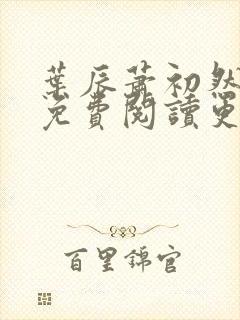 葉辰蕭初然
免費閱讀更
百里錦官